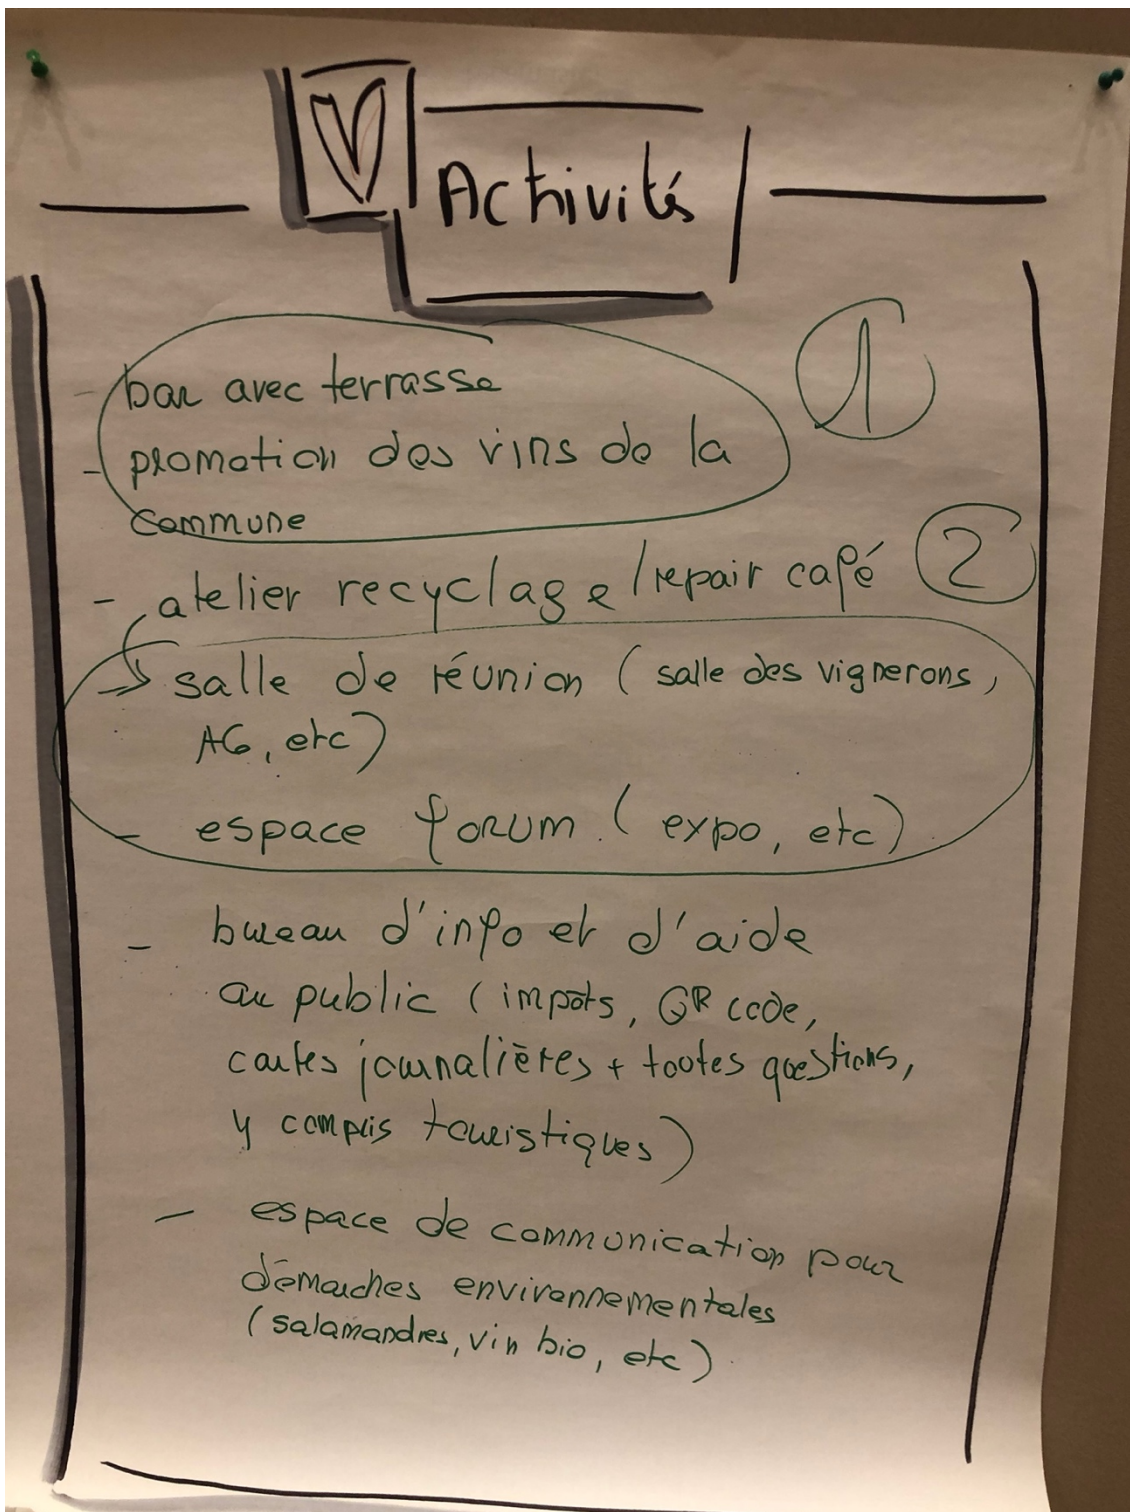 Activités
1
- bar avec terrasse
- promotion des vins de la
commune
2
- atelier recyclage / repair café
→ salle de réunion ( salle des vignerons,
AG, etc)
- espace forum. ( expo, etc)
- bureau d'info et d'aide
au public ( impots, QR code,
cartes journalières + toutes questions,
y compris touristiques)
- espace de communication pour
démarches environnementales
( salamandres, vin bio, etc).